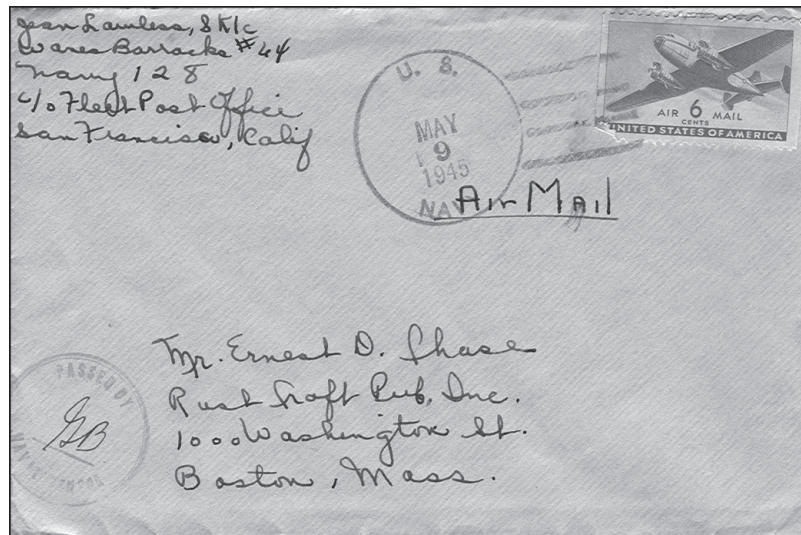 Jean Lawless, SK1c
Waves Barracks #44
Navy 128
c/o Fleet Post Office
San Francisco, Calif
U. S.
MAY
9
1945
NAVY
AIR 6 MAIL
CENTS
UNITED STATES OF AMERICA
Air Mail
Mr. Ernest D. Chase
Rust Craft Pub. Inc.
1000 Washington St.
Boston, Mass.
PASSED BY
GB
NAVAL CENSOR